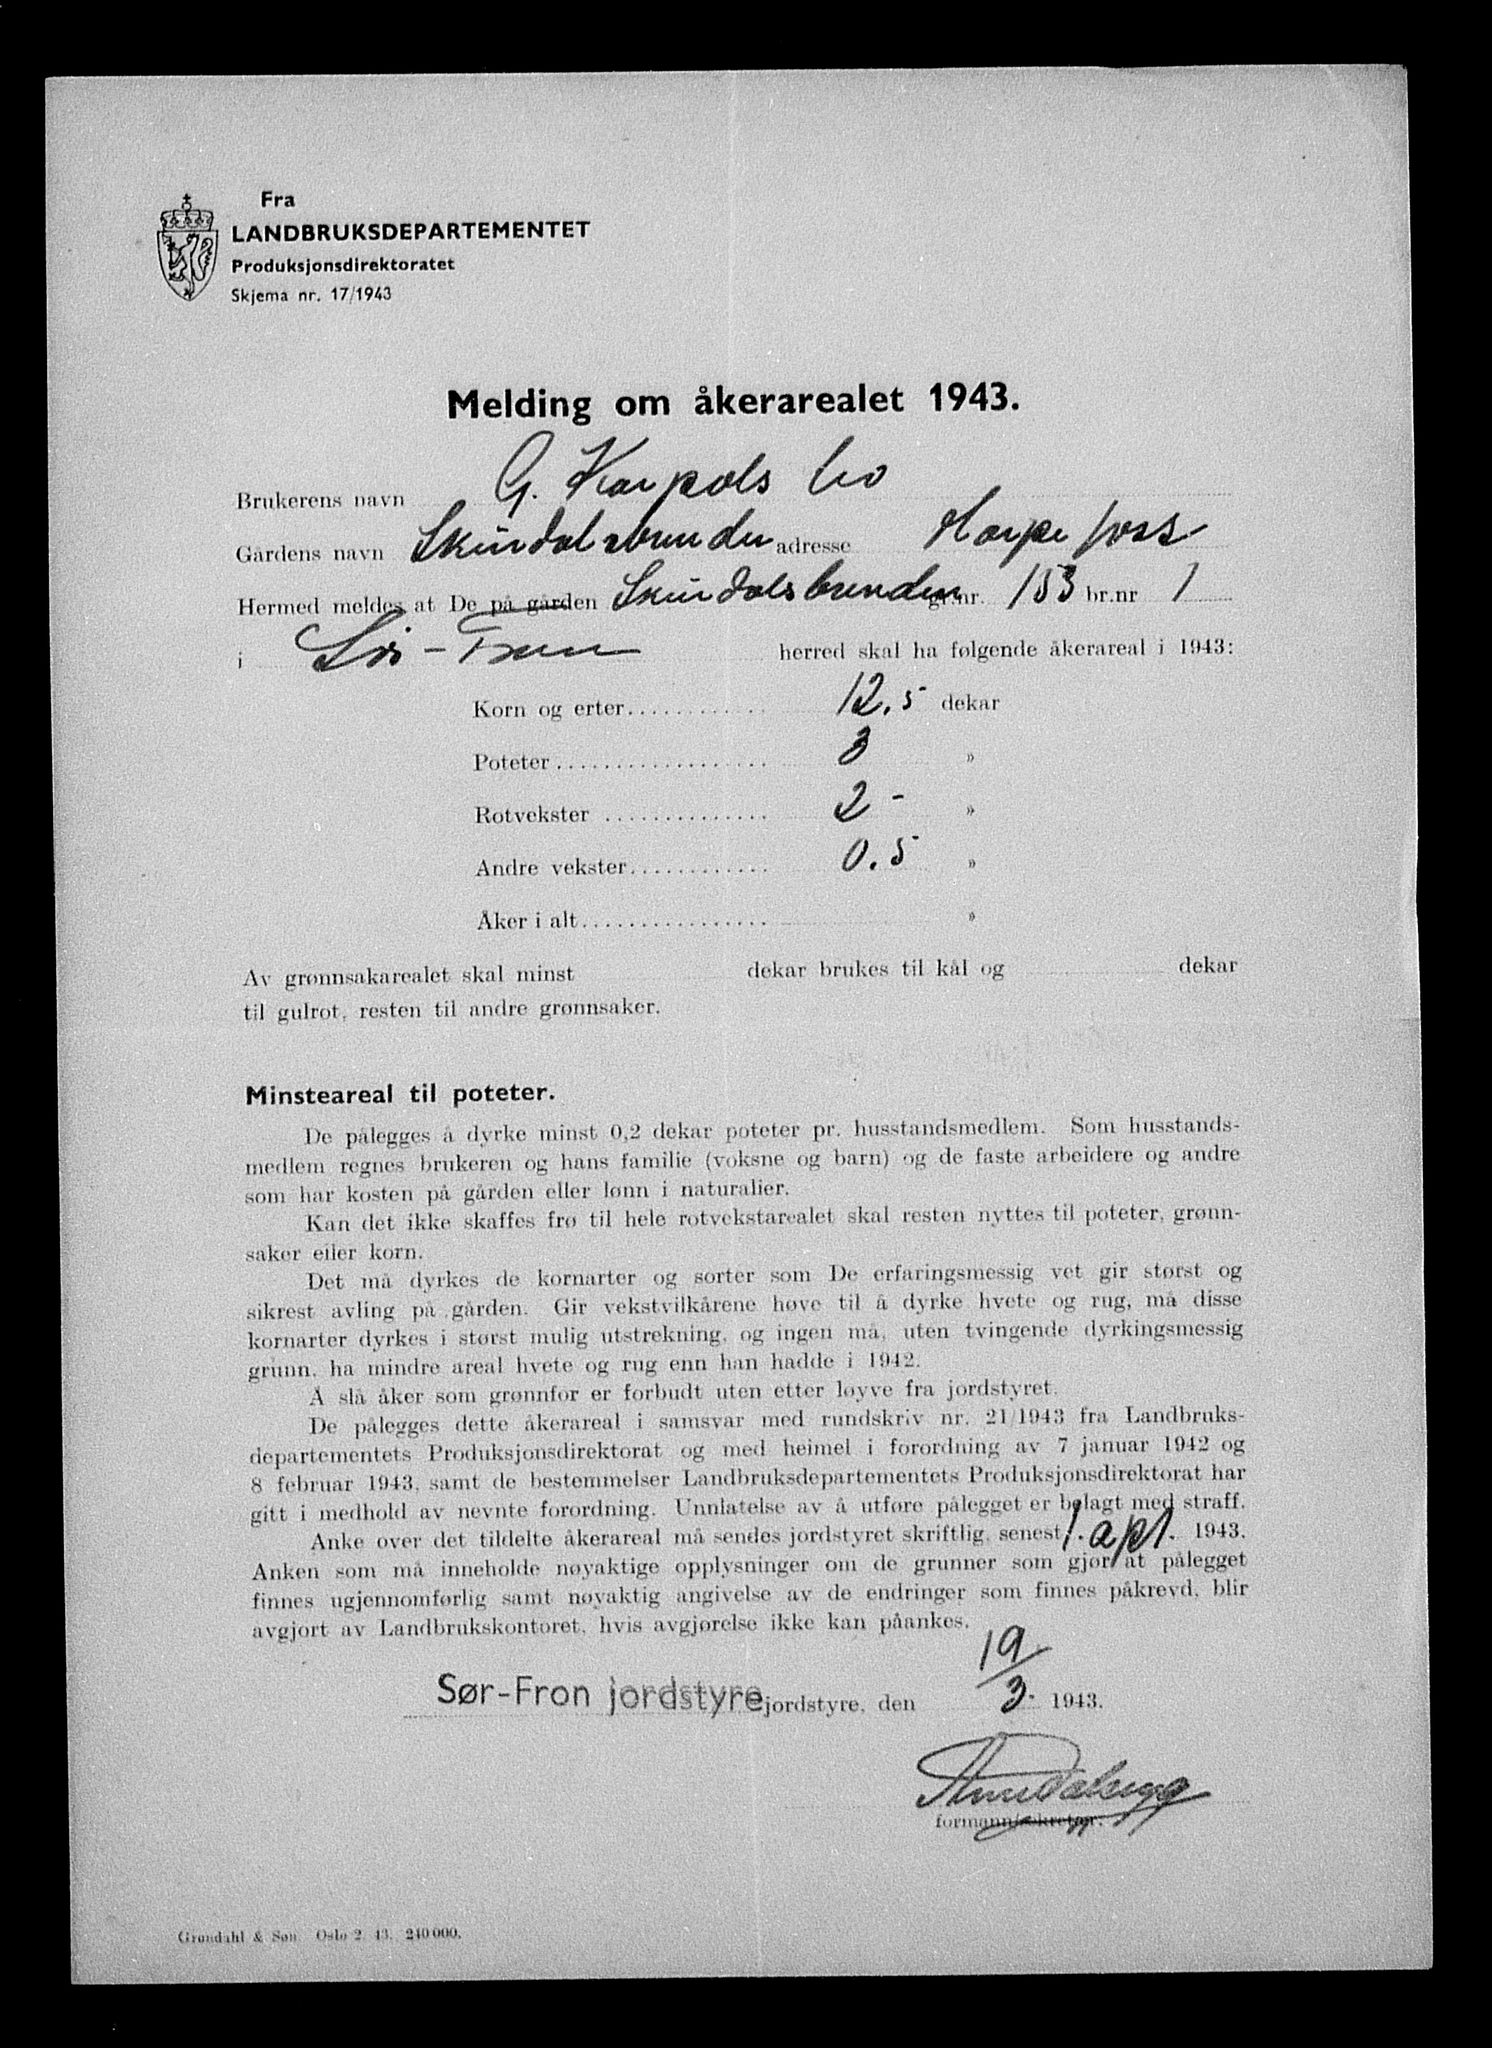 Fra
LANDBRUKSDEPARTEMENTET
Produksjonsdirektoratet
Skjema nr. 17/1943
Melding om åkerarealet 1943.
Brukerens navn G. Karpols
Gårdens navn Skurdalsbrenden adresse Harpefoss
Hermed meldes at De på gården Skurdalsbrenden gr.nr. 153 br.nr 1
i Sør-Fron herred skal ha følgende åkerareal i 1943:
Korn og erter 12.5 dekar
Poteter 3 »
Rotvekster 2 - »
Andre vekster 0.5 »
Åker i alt »
Av grønnsakarealet skal minst dekar brukes til kål og dekar
til gulrot, resten til andre grønnsaker.
Minsteareal til poteter.
De pålegges å dyrke minst 0,2 dekar poteter pr. husstandsmedlem. Som husstands-
medlem regnes brukeren og hans familie (voksne og barn) og de faste arbeidere og andre
som har kosten på gården eller lønn i naturalier.
Kan det ikke skaffes frø til hele rotvekstarealet skal resten nyttes til poteter, grønn-
saker eller korn.
Det må dyrkes de kornarter og sorter som De erfaringsmessig vet gir størst og
sikrest avling på gården. Gir vekstvilkårene høve til å dyrke hvete og rug, må disse
kornarter dyrkes i størst mulig utstrekning, og ingen må, uten tvingende dyrkingsmessig
grunn, ha mindre areal hvete og rug enn han hadde i 1942.
Å slå åker som grønnfor er forbudt uten etter løyve fra jordstyret.
De pålegges dette åkerareal i samsvar med rundskriv nr. 21/1943 fra Landbruks-
departementets Produksjonsdirektorat og med heimel i forordning av 7 januar 1942 og
8 februar 1943, samt de bestemmelser Landbruksdepartementets Produksjonsdirektorat har
gitt i medhold av nevnte forordning. Unnlatelse av å utføre pålegget er belagt med straff.
Anke over det tildelte åkerareal må sendes jordstyret skriftlig, senest 1. apl. 1943.
Anken som må inneholde nøyaktige opplysninger om de grunner som gjør at pålegget
finnes ugjennomførlig samt nøyaktig angivelse av de endringer som finnes påkrevd, blir
avgjort av Landbrukskontoret, hvis avgjørelse ikke kan påankes.
Sør-Fron jordstyre jordstyre, den 19/3. 1943.
formann/sekretær.
Grøndahl & Søn Oslo 2. 43. 240.000.